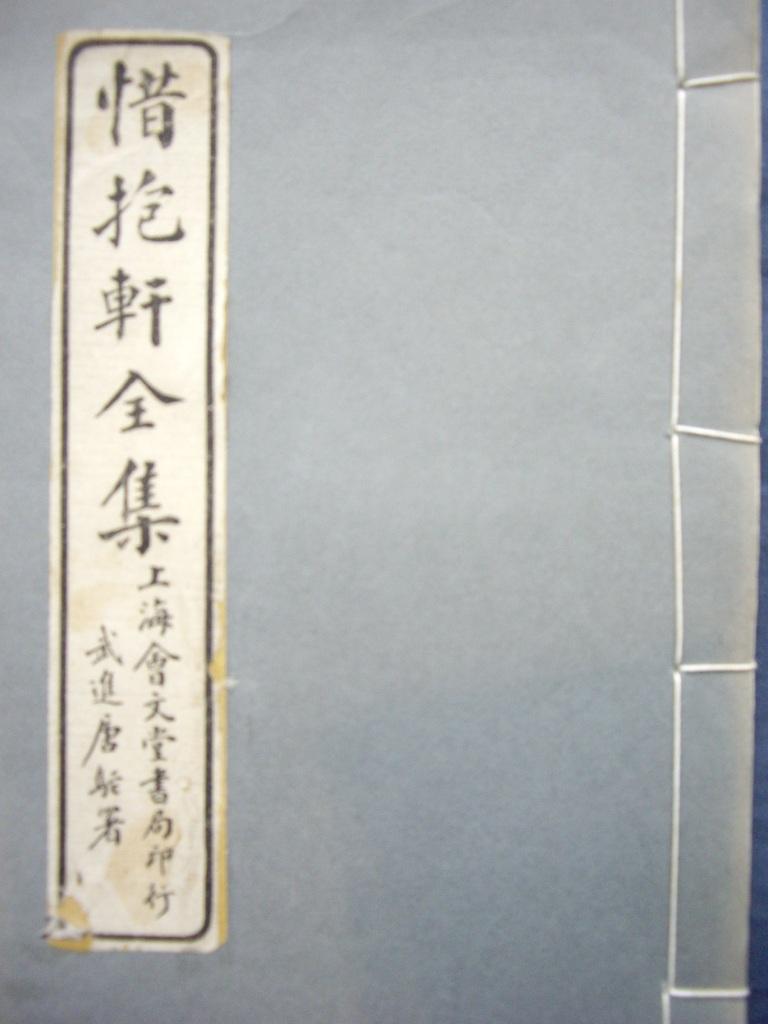 惜抱軒全集
上海會文堂書局印行
武進唐駝署